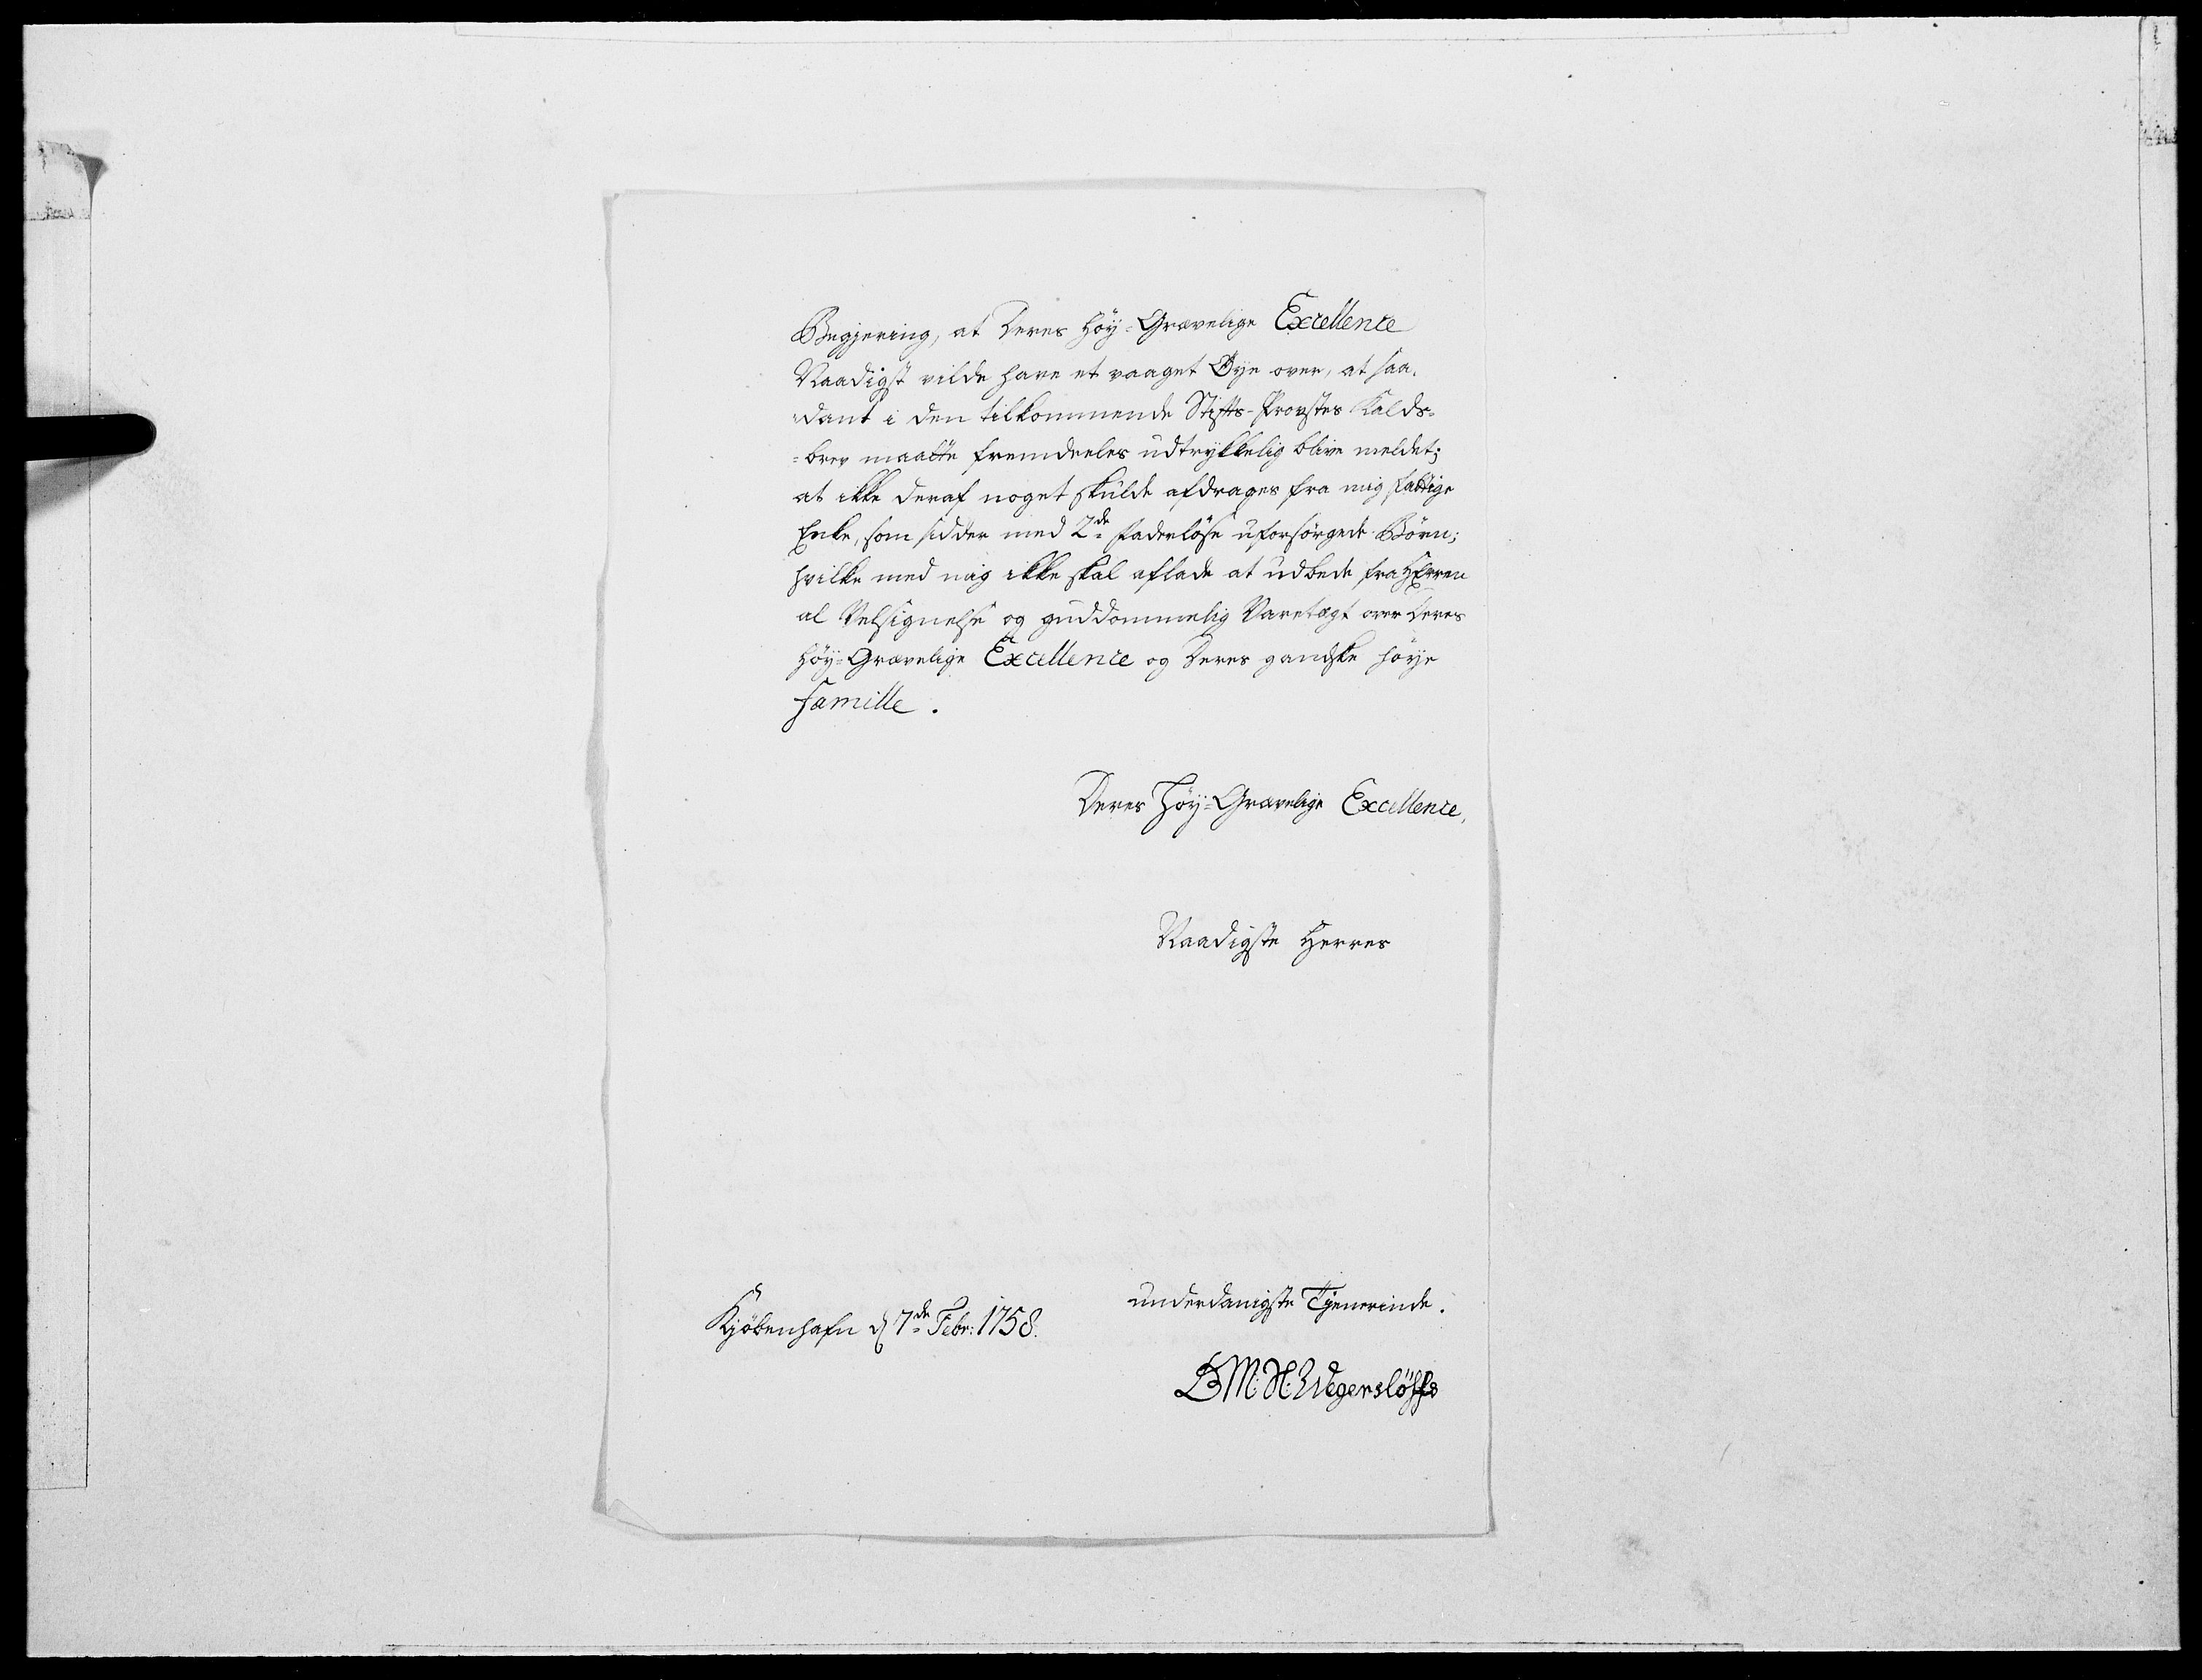 Begjering, at Deres Höy-Grævelige Excellence
Naadigst vilde have et vaaget Øye over, at saa-
dant i den tilkommende Stifts-Provstes Kalds-
=brev maatte fremdeeles udtrykkelig blive meldet;
at ikke deraf noget skulde afdrages fra mig fattige
Enke, som sidder med 2de faderlöse uforsörgede Börn;
hvilke med mig ikke skal aflade at udbede fra HErren
al Velsignelse og guddommelig Varetægt over Deres
Höy-Grævelige Excellence og Deres gandske höye
Famille.
Deres Höy-Grævelige Excellence,
Naadigste Herres
underdanigste Tjenerinde.
Kjöbenhafn d 7de Febr: 1758.